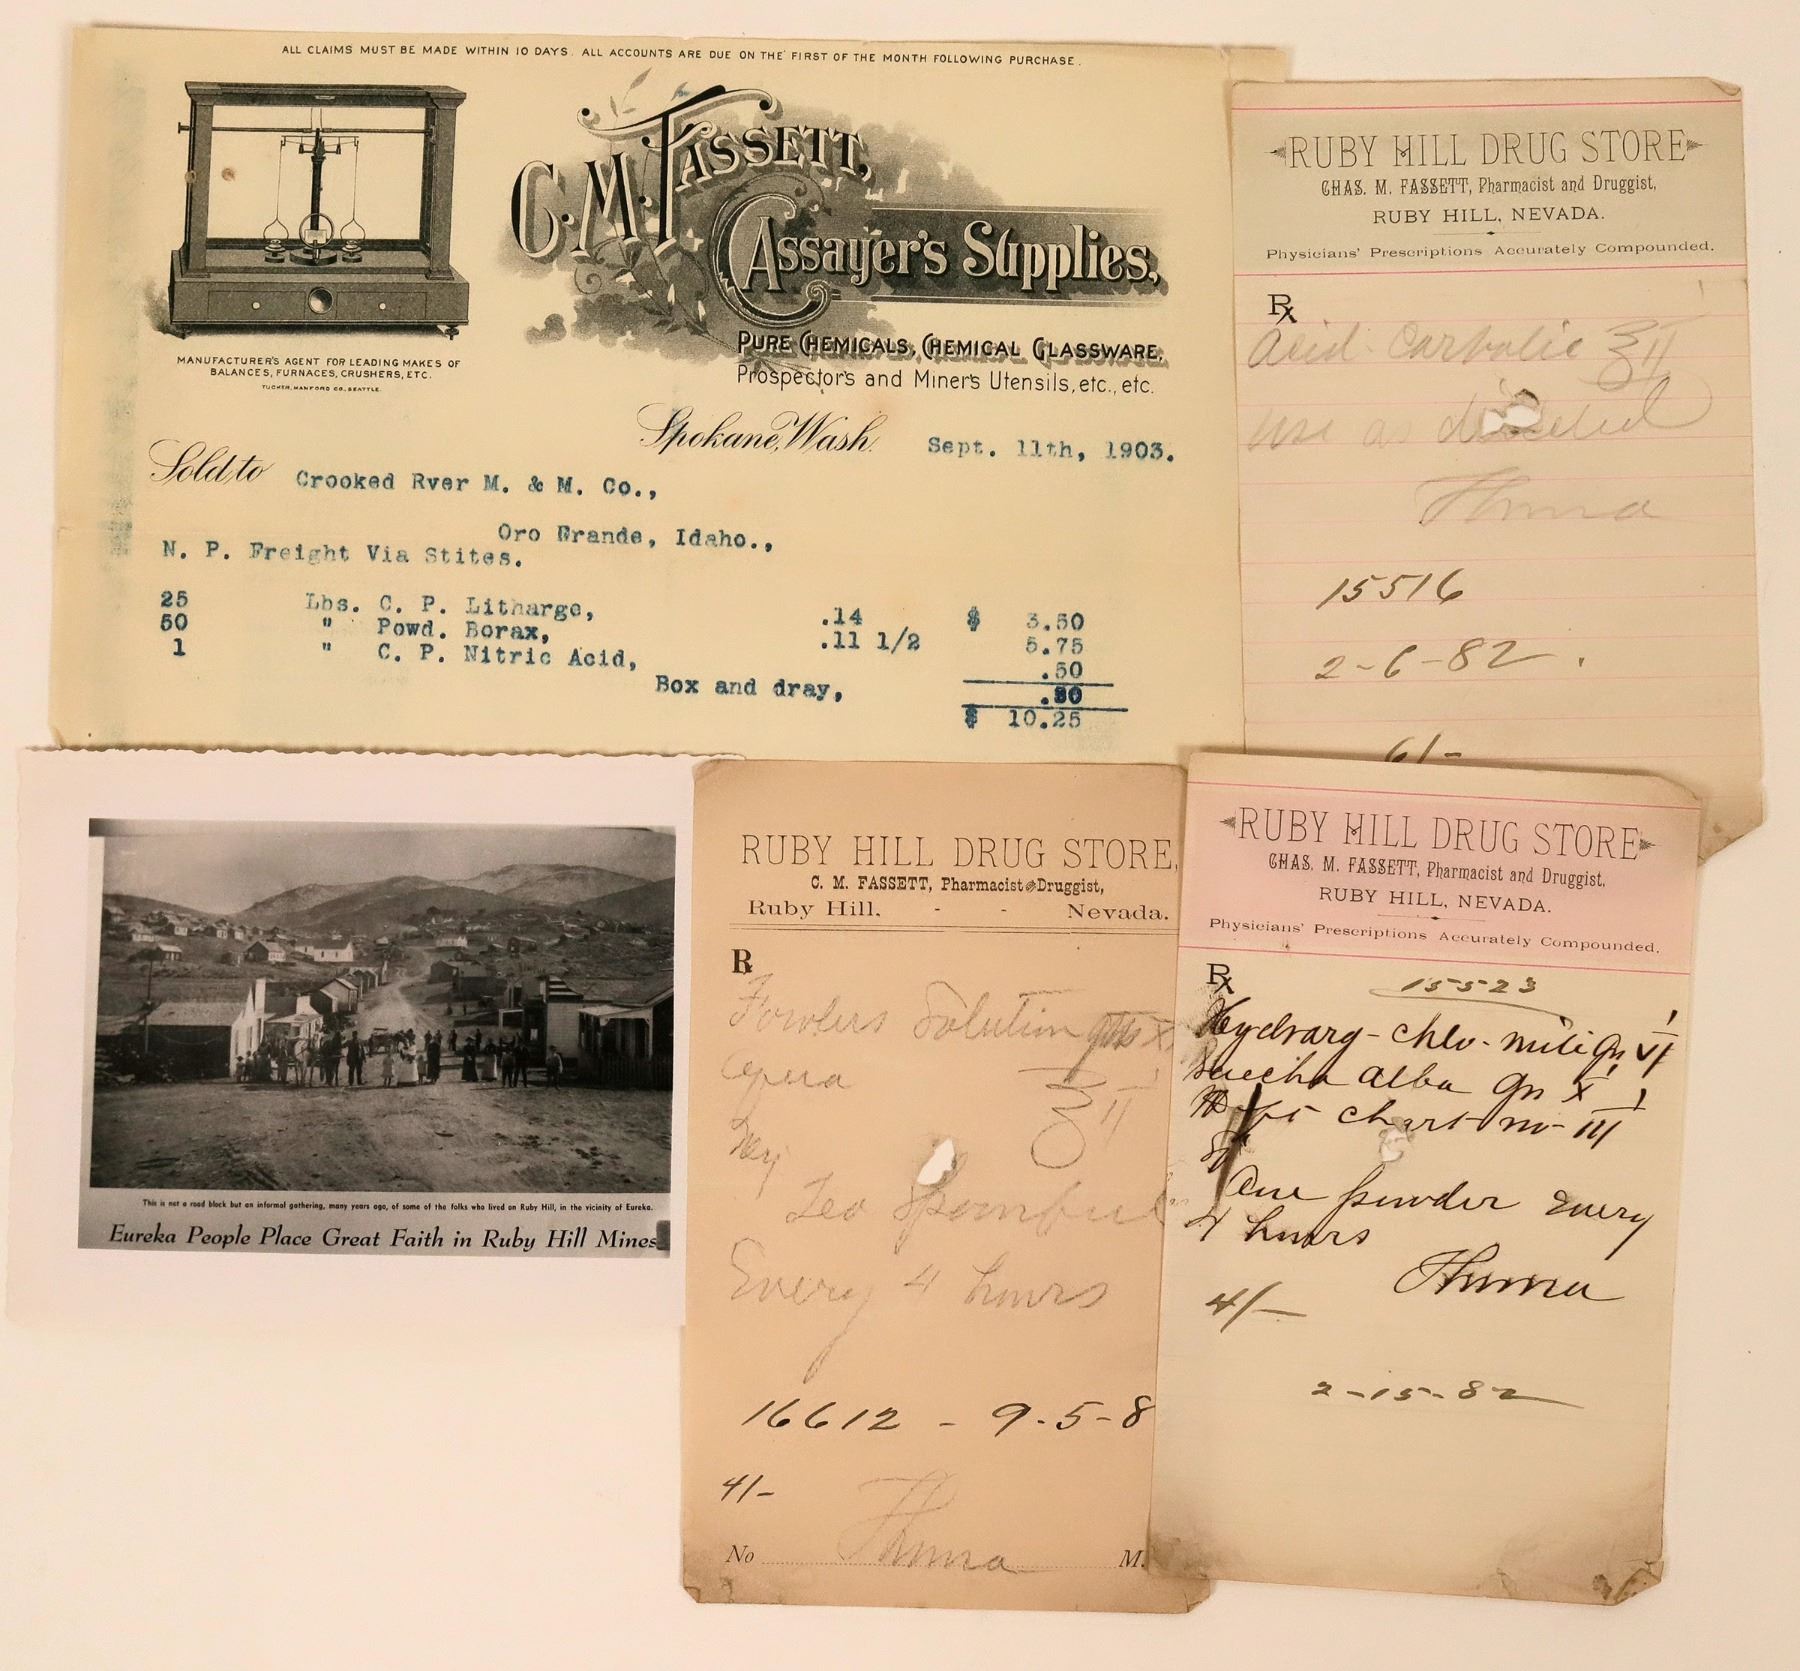 ALL CLAIMS MUST BE MADE WITHIN 10 DAYS. ALL ACCOUNTS ARE DUE ON THE FIRST OF THE MONTH FOLLOWING PURCHASE.
C. M. FASSETT,
Assayer's Supplies,
PURE CHEMICALS, CHEMICAL GLASSWARE,
Prospector's and Miner's Utensils, etc., etc.
MANUFACTURER'S AGENT FOR LEADING MAKES OF
BALANCES, FURNACES, CRUSHERS, ETC.
TUCKER, HANFORD CO. SEATTLE.
Spokane, Wash. Sept. 11th, 1903.
Sold to Crooked Rver M. & M. Co.,
Oro Grande, Idaho.,
N. P. Freight Via Stites.
25 Lbs. C. P. Litharge, .14 $ 3.50
50 " Powd. Borax, .11 1/2 5.75
1 " C. P. Nitric Acid, .50
Box and dray,
$ 10.25
RUBY HILL DRUG STORE
CHAS. M. FASSETT, Pharmacist and Druggist,
RUBY HILL, NEVADA.
Physicians' Prescriptions Accurately Compounded.
℞
Acid Carbolic ℥ II
use as directed
15516
2-6-82.
6/-
This is not a road block but an informal gathering, many years ago, of some of the folks who lived on Ruby Hill, in the vicinity of Eureka.
Eureka People Place Great Faith in Ruby Hill Mines
RUBY HILL DRUG STORE,
C. M. FASSETT, Pharmacist & Druggist,
Ruby Hill, - - Nevada.
℞
Fowlers Solution
℥ II
Every 4 hours
16612 - 9-5-8
4/-
No M.
RUBY HILL DRUG STORE
CHAS. M. FASSETT, Pharmacist and Druggist,
RUBY HILL, NEVADA.
Physicians' Prescriptions Accurately Compounded.
℞
15523
Hydrarg-chlo-miti Gr VI
alba Gr X
chart-no-III
One powder every
4 hours
4/-
2-15-82